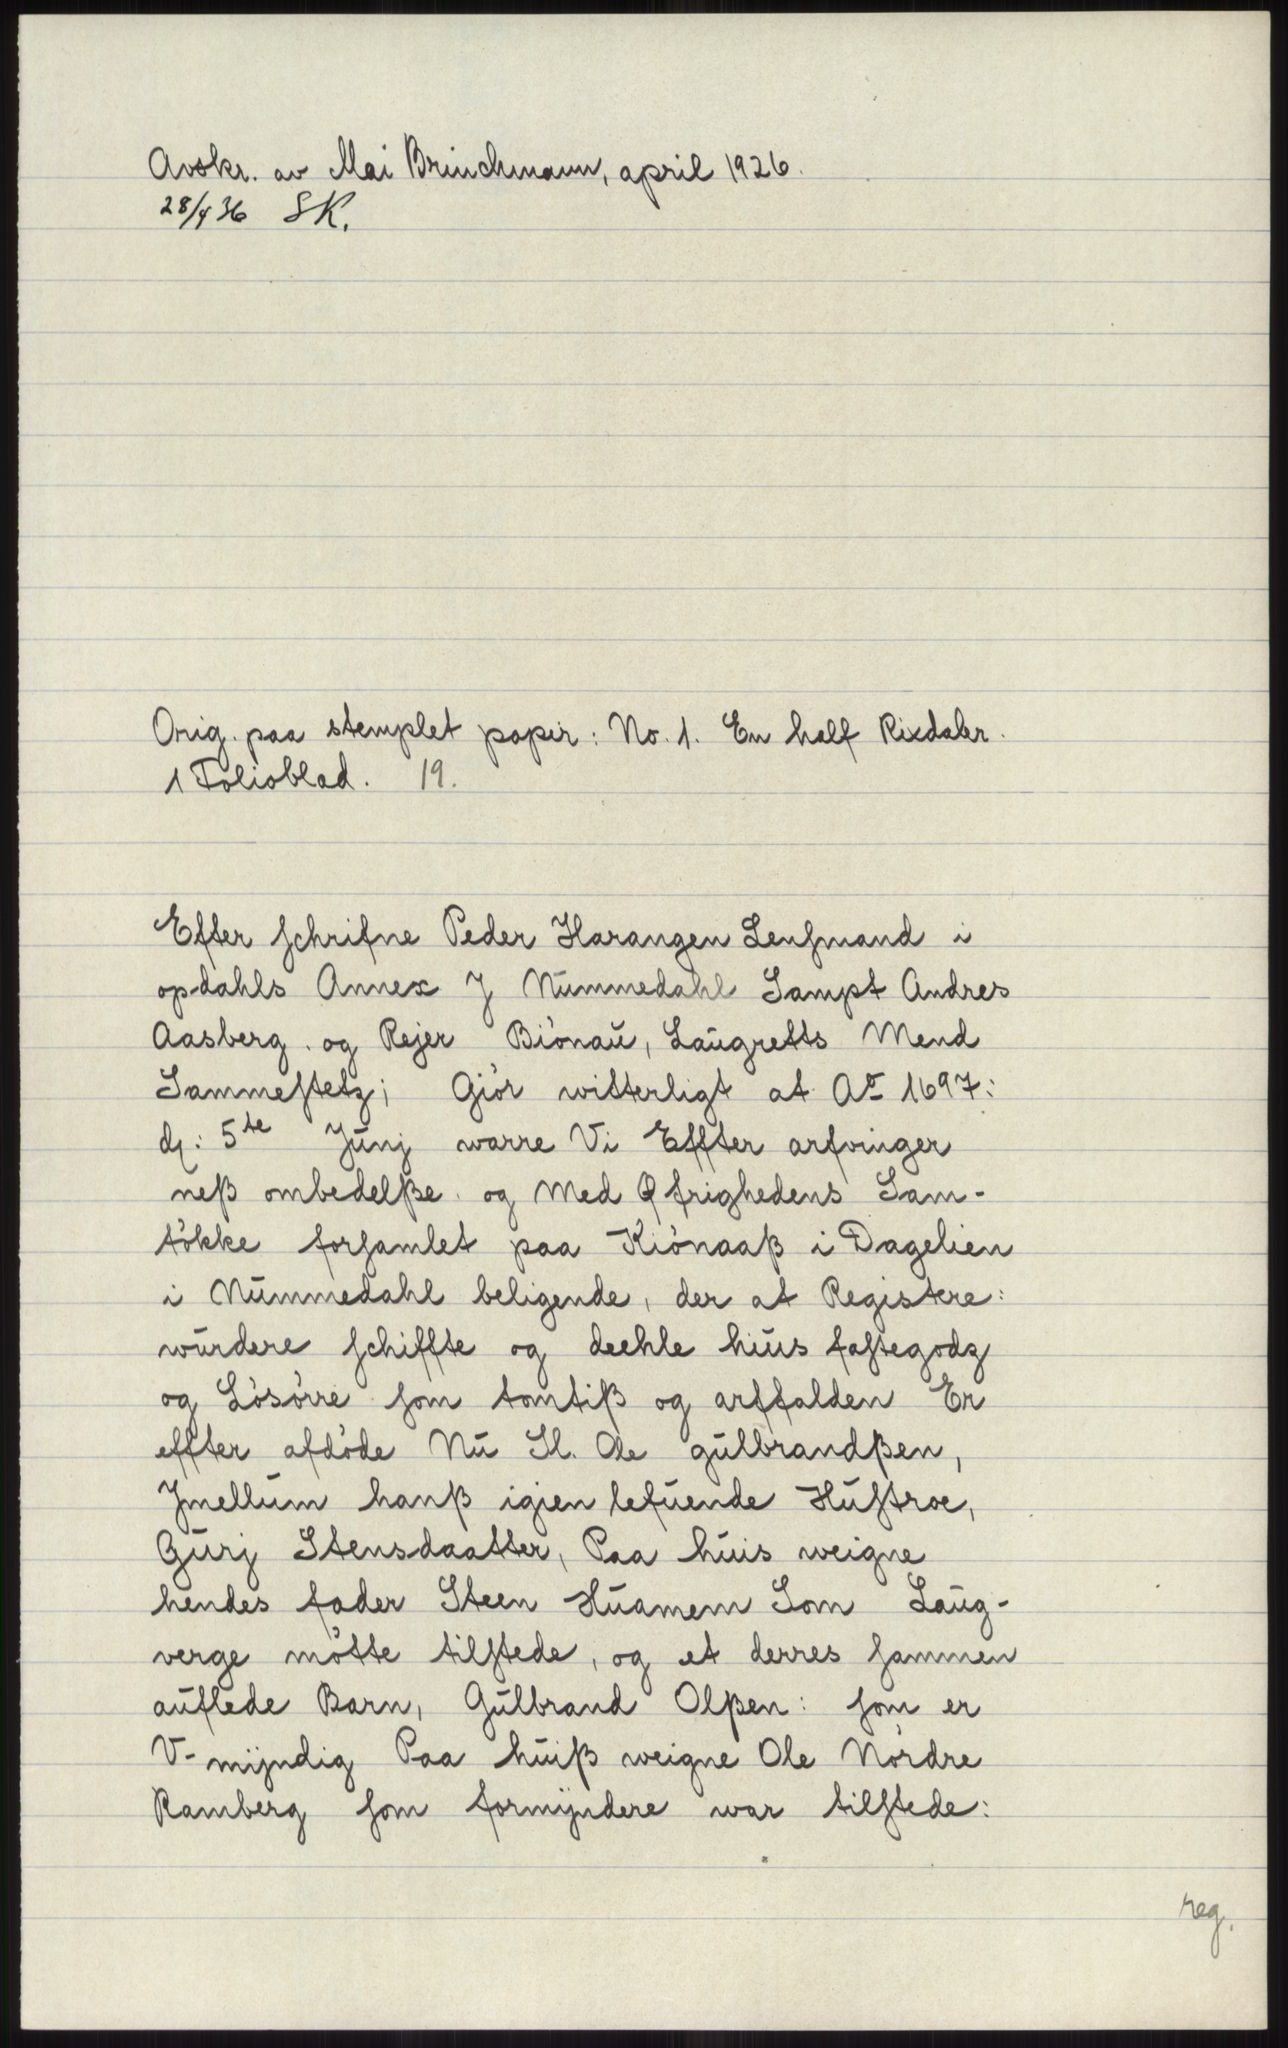 Avskr. av Mai Brinchmann, april 1926.
28/4 36 SK.
Orig. paa stemplet papir: No. 1. En half Rixdaler.
1 Folioblad. 19.
Efter schrifne Peder Harangen Lensmand i
opdahls Annex J Nummedahl Sampt Andres
Aasberg. og Rejer Biönaŭ, Laŭgretts Mend
Sammestetz; Giör witterligt at Aº 1697:
d: 5te Jŭnj warre Vi Effter arfvinger
neß ombedelße. og Med Øfrighedens Sam-
tökke forsamlet paa Kiönaaß i Dagelien
i Nŭmmedahl beligende, der at Registere:
wŭrdere schiffte og deehle hŭis fastegodz
og Lösörre som tomtiß og arffalden Er
effter afdöde Nŭ Sl. Ole gŭlbrandßen,
Jmellŭm hanß igien lefŭende Hŭstroe,
Gŭrj Stensdaatter, Paa hŭis weigne
hendes fader Steen Hŭamem Som Laŭg-
verge mötte tilstede, og et derres sammen
aŭflede Barn, Gŭlbrand Olßen: som er
V-mÿndig Paa hŭiß weigne Ole Nördre
Ramberg som formÿndere war tilstede:
reg.